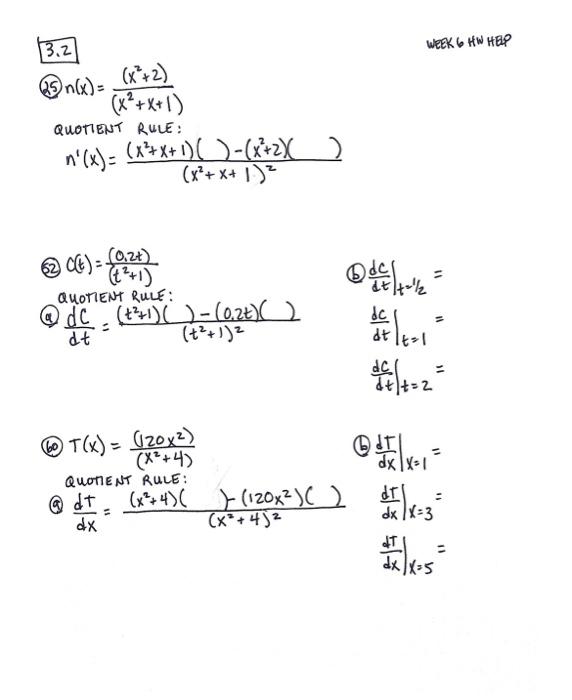 3.2
WEEK 6 HW HELP
25 n(x) = (x²+2) / (x²+x+1)
QUOTIENT RULE:
n'(x) = (x²+x+1)( ) - (x²+2)( ) / (x²+x+1)²
52 C(t) = (0.2t) / (t²+1)
QUOTIENT RULE:
a dC/dt = (t²+1)( ) - (0.2t)( ) / (t²+1)²
b dC/dt | t=1/2 =
dC/dt | t=1 =
dC/dt | t=2 =
60 T(x) = (120x²) / (x²+4)
QUOTIENT RULE:
a dT/dx = (x²+4)( ) - (120x²)( ) / (x²+4)²
b dT/dx | x=1 =
dT/dx | x=3 =
dT/dx | x=5 =